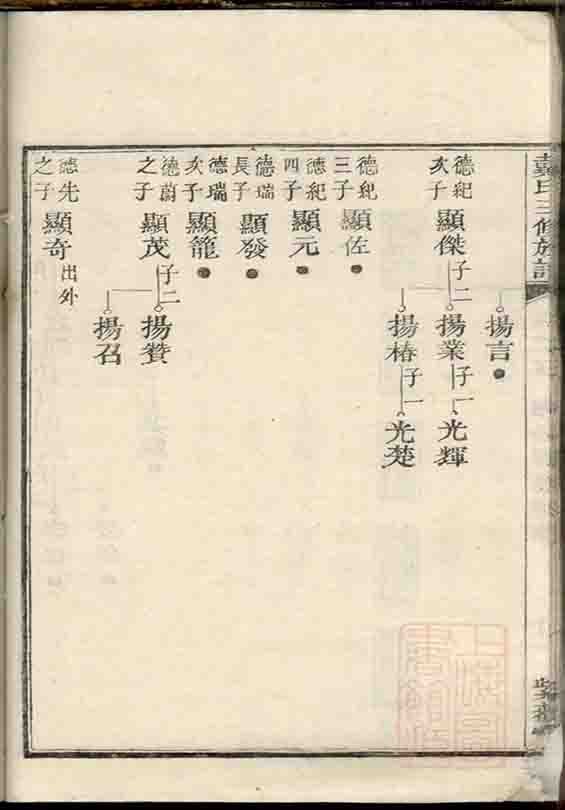 氏三修族譜
揚言
德紀
次子
顯傑
子二
揚業
子一
光輝
揚椿
子一
光楚
德紀
三子
顯佐
德紀
四子
顯元
德瑞
長子
顯發
德瑞
次子
顯籠
德蔚
之子
顯茂
子二
揚贊
揚召
德先
之子
顯奇
出外
上海圖書館藏